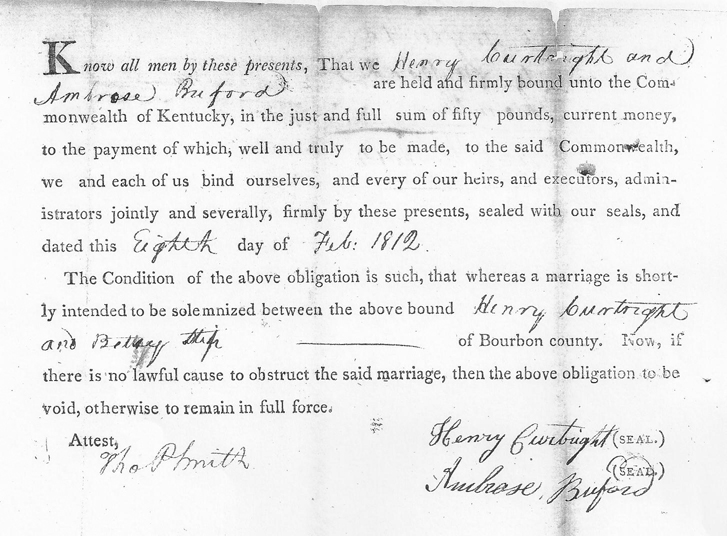 Know all men by these presents, That we Henry Curtright and
Ambrose Buford are held and firmly bound unto the Com-
monwealth of Kentucky, in the just and full sum of fifty pounds, current money,
to the payment of which, well and truly to be made, to the said Commonwealth,
we and each of us bind ourselves, and every of our heirs, and executors, admin-
istrators jointly and severally, firmly by these presents, sealed with our seals, and
dated this Eighth day of Feb: 1812.
The Condition of the above obligation is such, that whereas a marriage is short-
ly intended to be solemnized between the above bound Henry Curtright
and Betsey Stip of Bourbon county. Now, if
there is no lawful cause to obstruct the said marriage, then the above obligation to be
void, otherwise to remain in full force.
Attest, Henry Curtright (SEAL.)
Tho P Smith (SEAL.)
Ambrose Buford